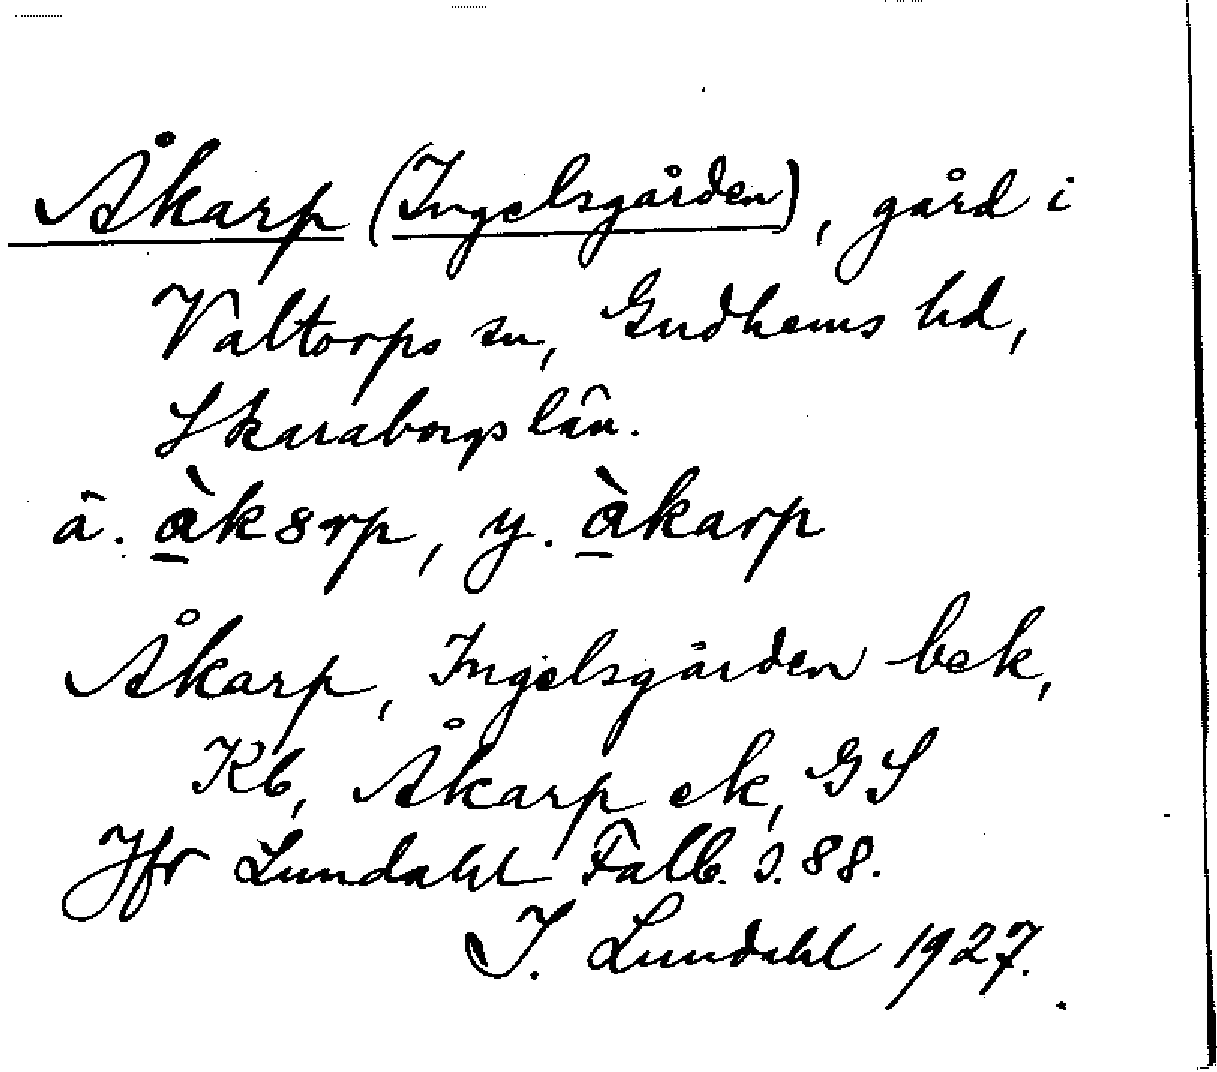 Åkarp (Ingelsgården), gård i
Valtorps sn, Gudhems hd,
Skaraborgs län.
ä. à̱k8rp, y. à̱karp
Åkarp, Ingelsgården bek,
Kb, Åkarp ek, GS
Jfr Lundahl Falb. s. 88.
I. Lundahl 1927.